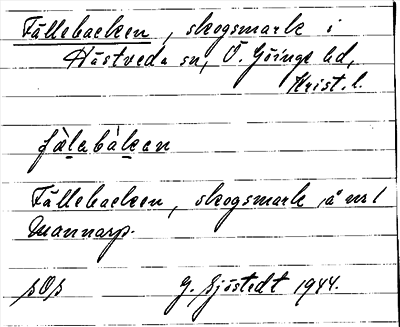 Fällebacken, skogsmark i
Hästveda sn, Ö. Göinge hd,
Krist. l.
fàlebàken
Fällebacken, skogsmark å nr 1
Mannarp.
G. Sjöstedt 1944.